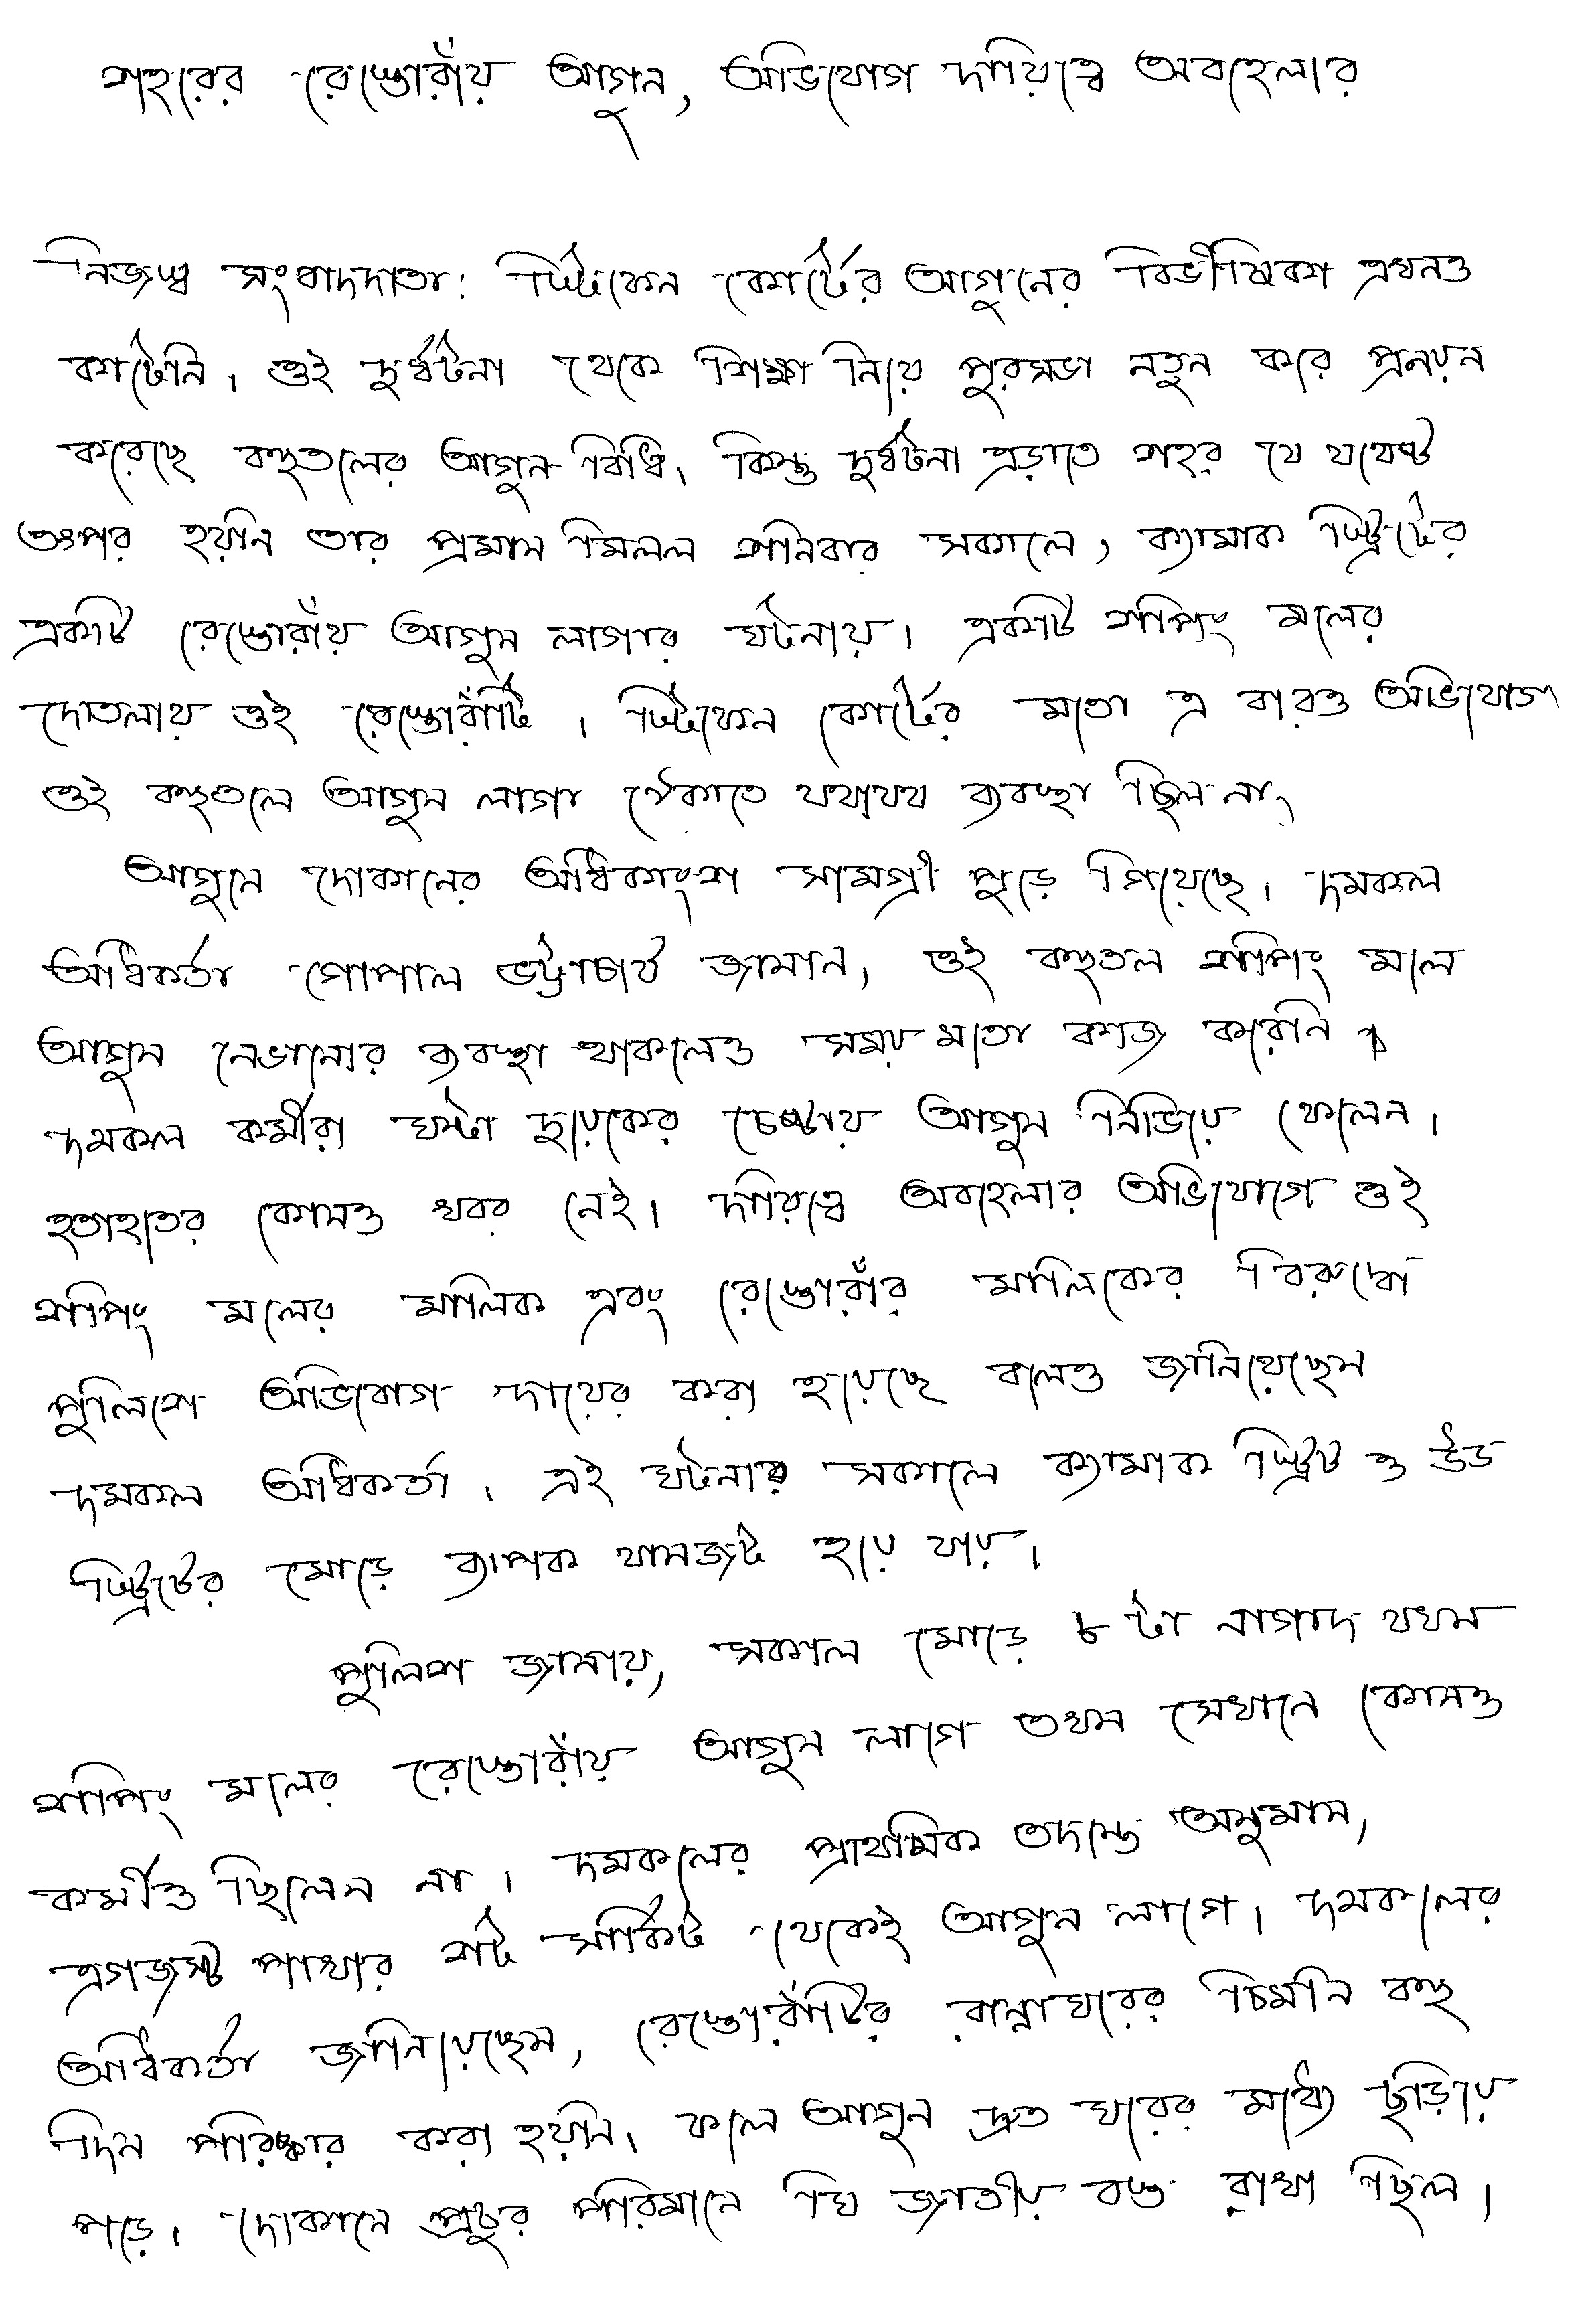 শহরের রেস্তোরাঁয় আগুন, অভিযোগ দায়িত্বে অবহেলার
নিজস্ব সংবাদদাতা: স্টিফেন কোর্টের আগুনের বিভীষিকা এখনও
কাটেনি। ওই দুর্ঘটনা থেকে শিক্ষা নিয়ে পুরসভা নতুন করে প্রনয়ন
করেছে বহুতলের আগুন-বিধি। কিন্তু দুর্ঘটনা এড়াতে শহর যে যথেষ্ট
তৎপর হয়নি তার প্রমান মিলল শনিবার সকালে, ক্যামাক স্ট্রিটের
একটি রেস্তোরাঁয় আগুন লাগার ঘটনায়। একটি শপিং মলের
দোতলায় ওই রেস্তোরাঁটি। স্টিফেন কোর্টের মতো এ বারও অভিযোগ
ওই বহুতলে আগুন লাগা ঠেকাতে যথাযথ ব্যবস্থা ছিল না।
আগুনে দোকানের অধিকাংশ সামগ্রী পুড়ে গিয়েছে। দমকল
অধিকর্তা গোপাল ভট্টাচার্য জানান, ওই বহুতল শপিং মলে
আগুন নেভানোর ব্যবস্থা থাকলেও সময় মতো কাজ করেনি।
দমকল কর্মীরা ঘন্টা দুয়েকের চেষ্টায় আগুন নিভিয়ে ফেলেন।
হতাহতের কোনও খবর নেই। দায়িত্বে অবহেলার অভিযোগে ওই
শপিং মলের মালিক এবং রেস্তোরাঁর মালিকের বিরুদ্ধে
পুলিশে অভিযোগ দায়ের করা হয়েছে বলেও জানিয়েছেন
দমকল অধিকর্তা। এই ঘটনার সকালে ক্যামাক স্ট্রিট ও উড
স্ট্রিটের মোড়ে ব্যাপক যানজট হয়ে যায়।
পুলিশ জানায়, সকাল মোড়ে ৮ টা নাগাদ যখন
শপিং মলের রেস্তোরাঁয় আগুন লাগে তখন সেখানে কোনও
কর্মীও ছিলেন না। দমকলের প্রাথমিক তদন্তে অনুমান,
এগজস্ট পাখার শর্ট সার্কিট থেকেই আগুন লাগে। দমকলের
অধিকর্তা জানিয়েছেন, রেস্তোরাঁটির রান্নাঘরের চিমনি বহু
দিন পরিষ্কার করা হয়নি। ফলে আগুন দ্রুত ঘরের মধ্যে ছড়িয়ে
পড়ে। দোকানে প্রচুর পরিমানে ঘি জাতীয় বস্তু রাখা ছিল।